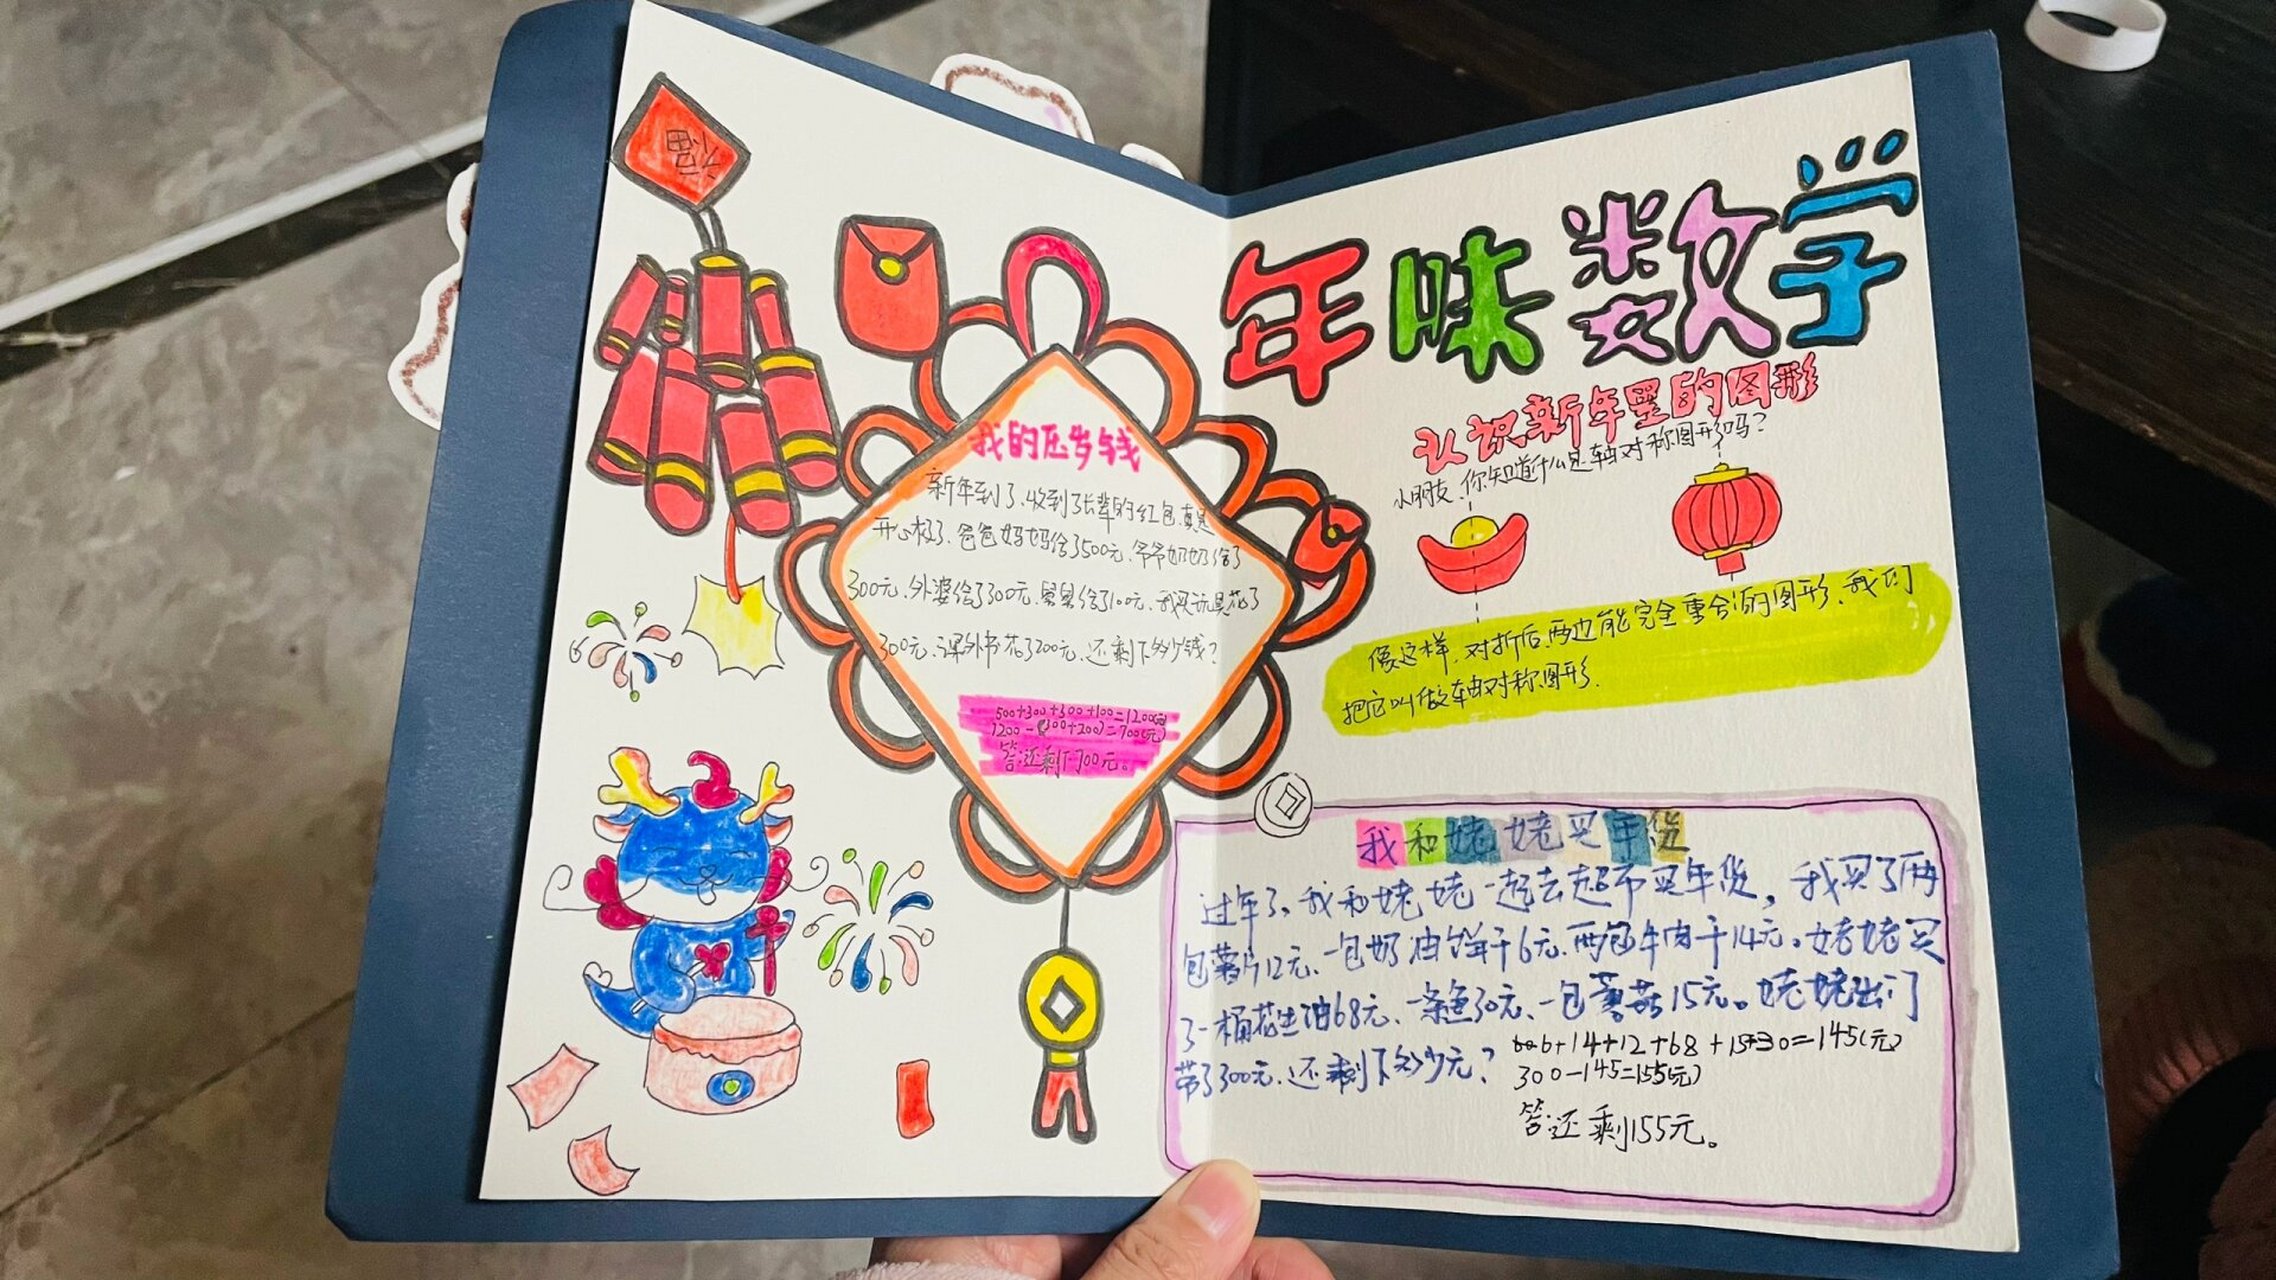 福
我的压岁钱
新年到了、收到了长辈的红包、真是
开心极了、爸爸妈妈给了500元、爷爷奶奶给了
300元、外婆给了300元、舅舅给了100元、我买玩具花了
300元、课外书花了200元、还剩下多少钱?
500+300+300+100=1200(元)
1200-(300+200)=700(元)
答:还剩下700元。
年味数学
认识新年里的图形
小朋友、你知道什么是轴对称图形吗?
像这样、对折后、两边能完全重合的图形、我们
把它叫做轴对称图形.
我和姥姥买年货
过年了、我和姥姥一起去超市买年货，我买了两
包薯片12元、一包奶油饼干6元、两包牛肉干14元。姥姥买
了一桶花生油68元、一条鱼30元、一包蘑菇15元。姥姥出门
带了300元、还剩下多少元?
6+14+12+68+15+30=145(元)
300-145=155(元)
答:还剩155元。